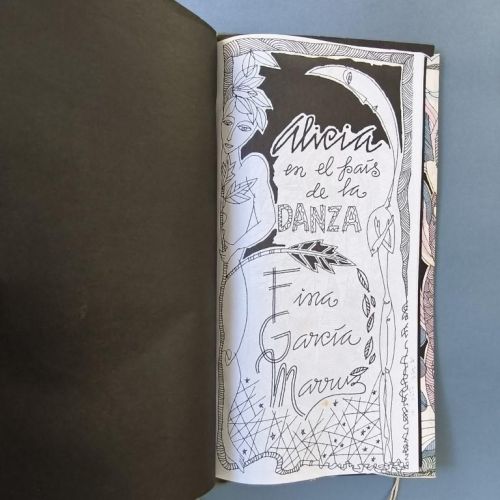 Alicia
en el país
de la
DANZA
Fina
García
Marruz